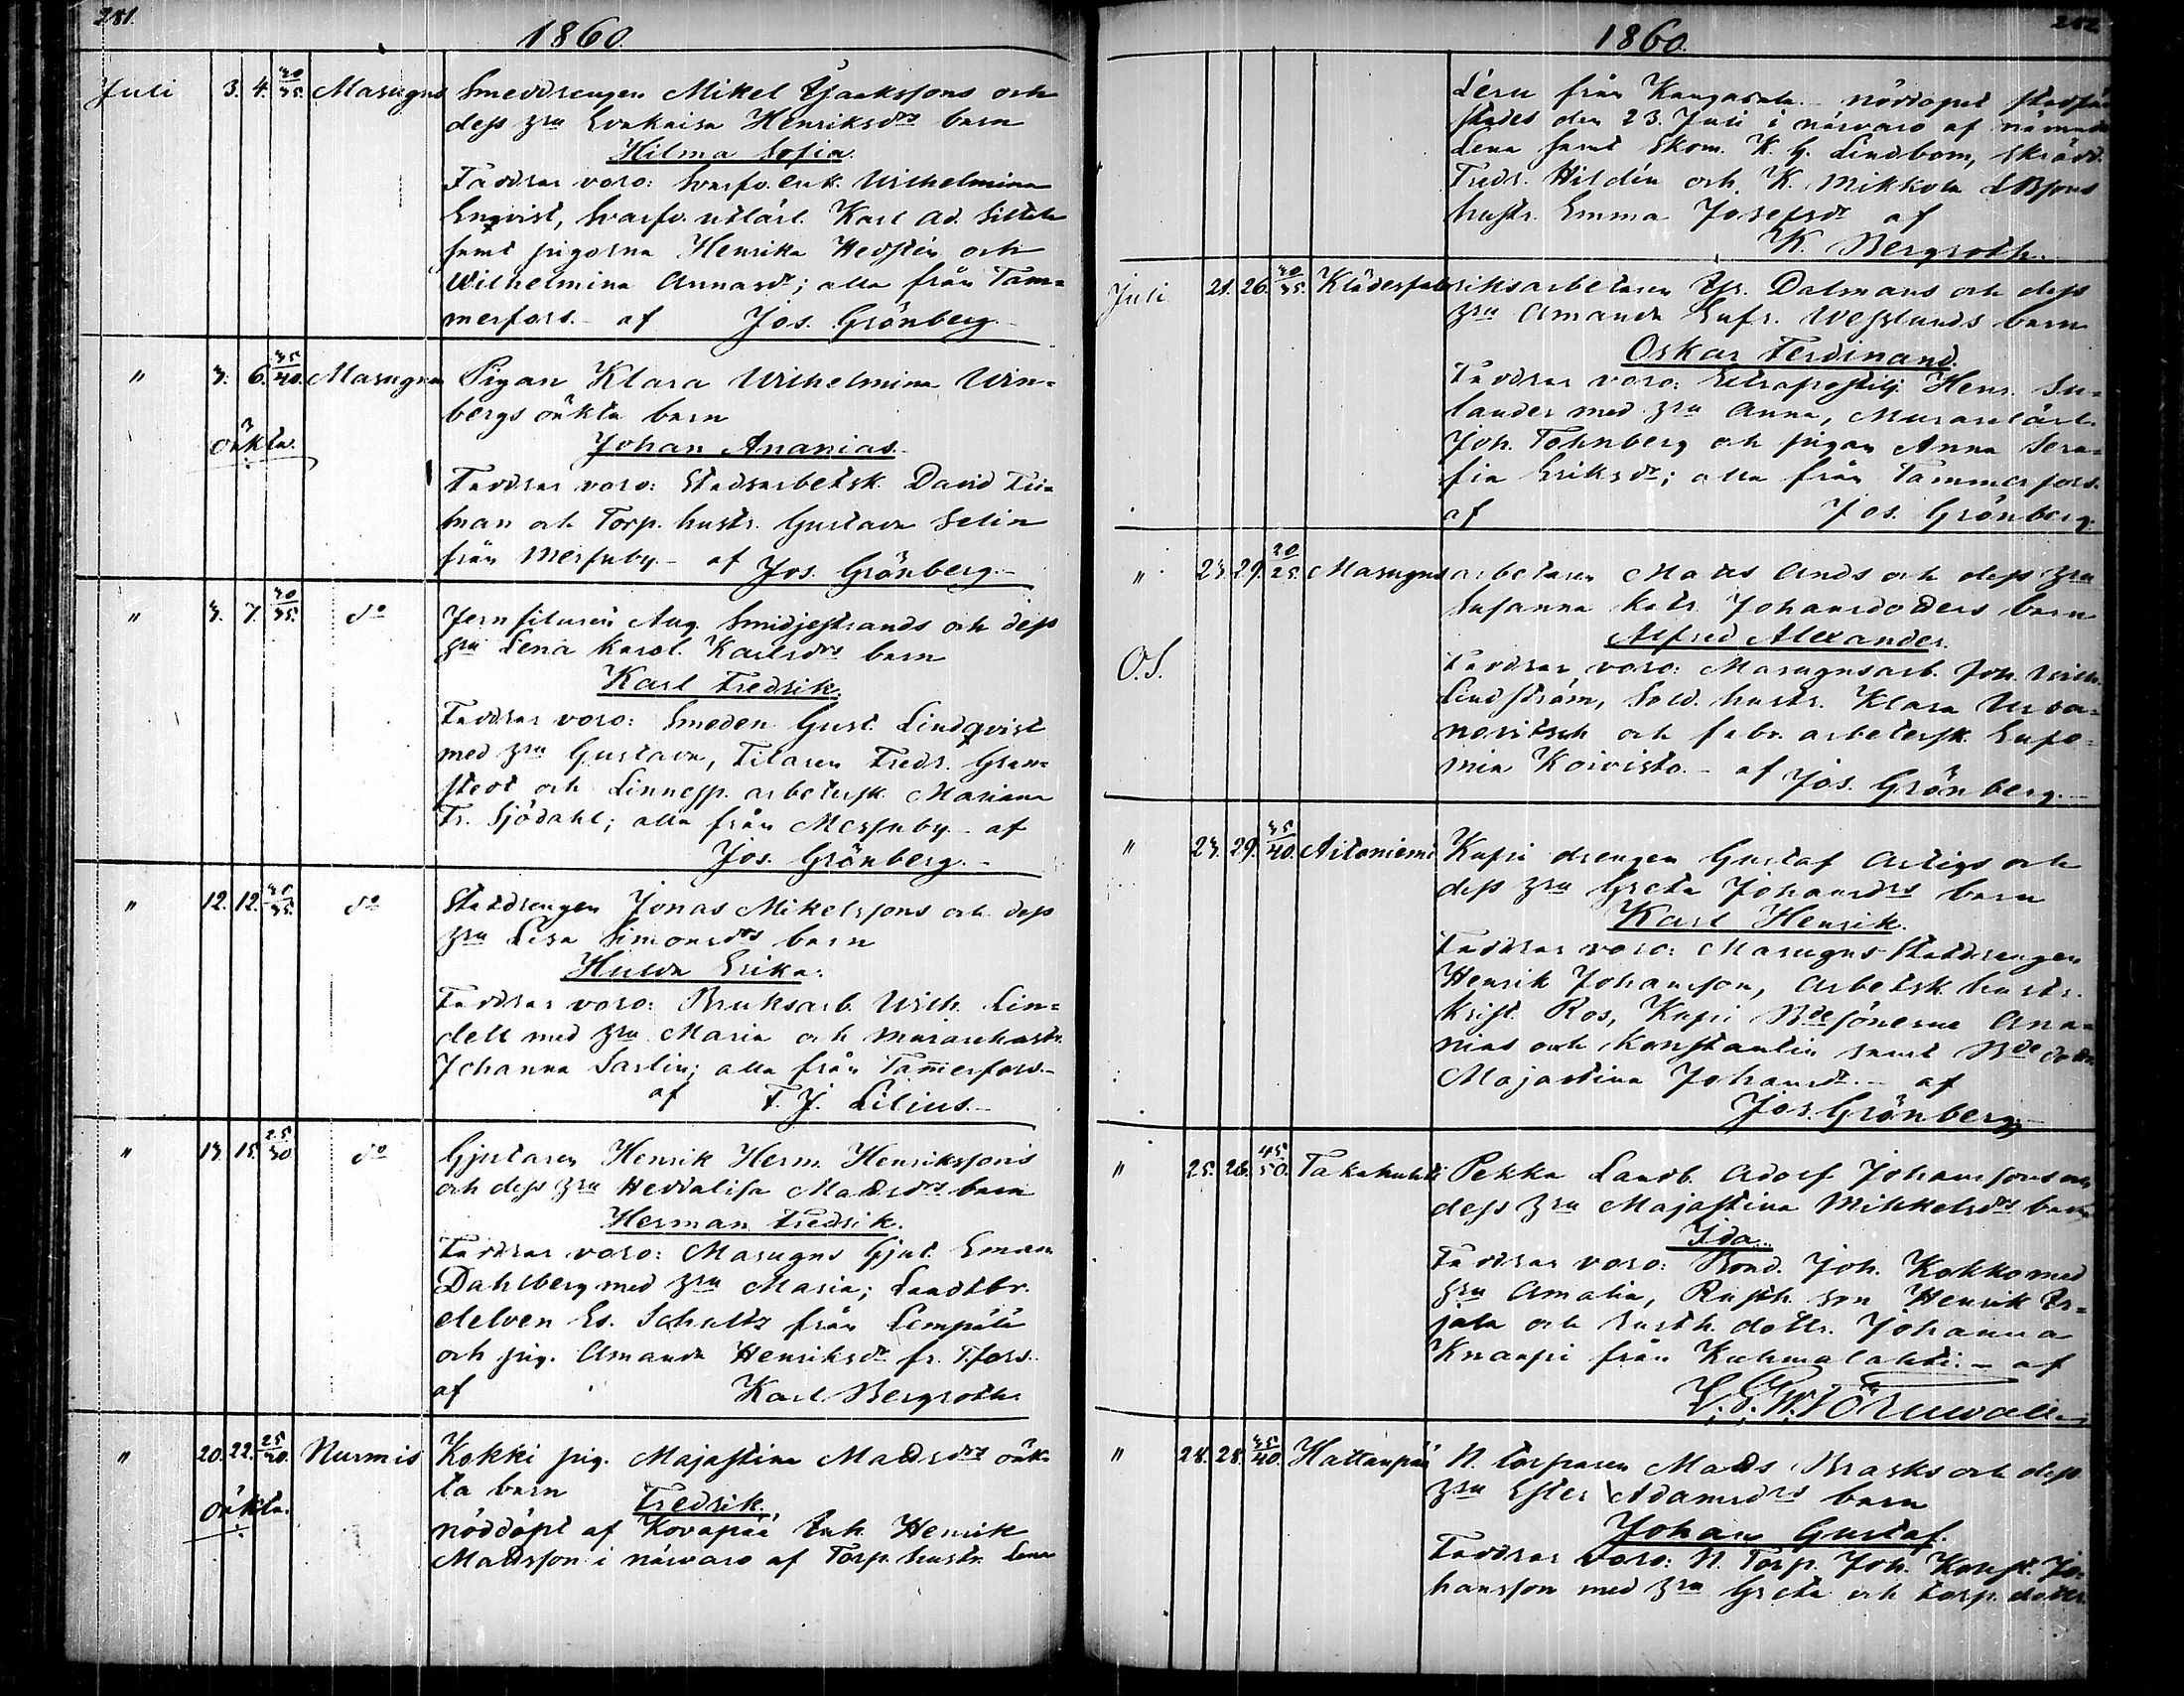 281.
1860.
Juli 3. 4. 30/35. Masugns Smeddrengen Mikel Isakssons och
dess hru Evakaisa Henriksdrs barn
Hilma Sofia.
Faddrar voro: Svarfv. enk. Wilhelmina
Enqvist, Svarfv. utlärl. Karl Ad.
samt pigorna Henrika Hedstén och
Wilhelmina Annasdr; alla från Tam=
merfors. - af Jos. Grönberg.-
" 3. 6. 35/40. Masugns Pigan Klara Wilhelmina Win=
bergs oäkta barn
oäkta. Johan Ananias.
Faddrar voro: Stadsarbetsk. David Fri=
man och Torp. hustr. Gustava Selin
från Messuby. - af Jos. Grönberg.-
" 3. 7. 30/35. do Jernfilaren Aug. Smidjestrands och dess
hru Lena Karol. Karlsdrs barn
Karl Fredrik.
Faddrar voro: Smeden Gust. Lindqvist
med hru Gustava, Filaren Fredr. Gran=
stedt och Linnesp. arbetersk. Mariana
Fr. Sjödahl; alla från Messuby - af
Jos. Grönberg.-
" 12. 12. 30/35. do Statdrengen Jonas Mikelssons och dess
hru Lisa Simonsdrs barn
Hulda Erika.
Faddrar voro: Bruksarb. Wilh. Lin=
dell med hru Maria och murarehustr.
Johanna Sarlin; alla från Tammerfors.-
af F. J. Lilius.-
" 13. 15. 25/30. do Gjutaren Henrik Herm. Henrikssons
och dess hru Heddalisa Matsdrs barn
Herman Fredrik.
Faddrar voro: Masugns Gjut. Eman.
Dahlberg med hru Maria; Landtbr.
eleven Es. Schultz från Lempälä
och pig. Amanda Henriksdr fr. Tfors.
af Karl Bergroth.
" 20. 22. 25/30. Nurmis Kokki pig. Majastina Matsdrs oäk=
ta barn Fredrik.
oäkta. nöddöpt af Kovapää Inh. Henrik
Matsson i närvaro af Torp. hustr. Lena
252.
1860.
Lesu från Kangasala. - nöddopet stadfä
stades den 23. Juli i närvaro af nämnde
Lena samt Skom. K. G. Lindbom, skrädd.
Fredr. Hildén och K. Mikkola
hustr. Emma Josefsdr af
K. Bergroth.
Juli 21. 26. 30/35. Klädesfabriksarbetaren Gr. Dalmans och dess
hru Amanda Eufr. Wesslunds barn
Oskar Ferdinand.
Faddrar voro: Extrapostilj. Henr. Su=
lander med hru Anna, Murarelärl.
Joh. Tohnberg och pigan Anna Sera=
fia Eriksdr; alla från Tammerfors.
af Jos. Grönberg.
" 23. 29. 20/25. Masugns arbetaren Mats Ands och dess hru
Susanna Katr. Johansdotters barn
Alfred Alexander.
O.S. Faddrar voro: Masugnsarb. Joh. Wilh.
Lindström, Sold. hustr. Klara Urva=
novitsch och fabr. arbetersk. Eufe=
mia Koivisto. - af Jos. Grönberg.-
" 23. 29. 35/40. Aitoniemi Kupi drengen Gustaf Artigs och
dess hru Greta Johansdrs barn
Karl Henrik.
Faddrar voro: Masugns Statdrengen
Henrik Johansson, Arbetsk. hustr.
Krist. Ros, Kupi Bdesönerne Ana=
nias och Konstantin samt Bde dottr.
Majastina Johansdr. - af
Jos. Grönberg.
" 25. 26. 45/50. Takahuhti Pekka Landb. Adolf Johanssons och
dess hru Majastina Mikkelsdrs barn
Ida.
Faddrar voro: Bond. Joh. Kokko med
hru Amalia, Rusth. son Henrik Er=
jala och rusth. dottr. Johanna
Knaapi från Kuhmalahti. - af
" 28. 28. 35/40. Hattanpää N. torparen Mats Brasks och dess
hru Ester Adamsdrs barn
Johan Gustaf.
Faddrar voro: N. Torp. Joh. Konst. Jo=
hansson med hru Greta och torp. dottr.